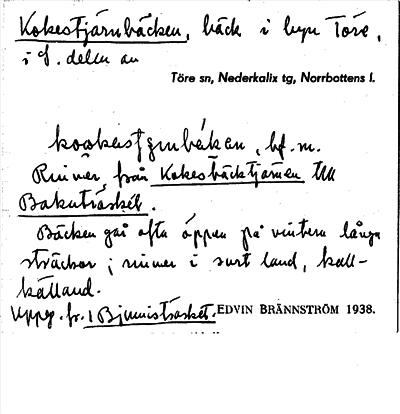 Kokestjärnbäcken, bäck i byn Töre,
i S. delen av
Töre sn, Nederkalix tg, Norrbottens l.
bf. m.
Rinner från Kokesbäcktjärnen till
Bakuträsket.
Bäcken går ofta öppen på vintern långa
sträckor; rinner i surt land, kall-
källand.
Uppg. fr. Bjumisträsket. EDVIN BRÄNNSTRÖM 1938.